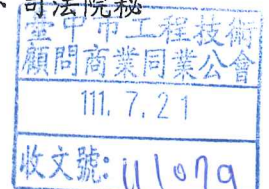 、司法院秘
臺中市工程技術
顧問商業同業公會
111.7.21
收文號: